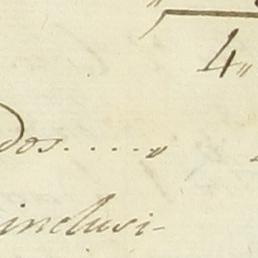 4„
dos.....„
inclusi-